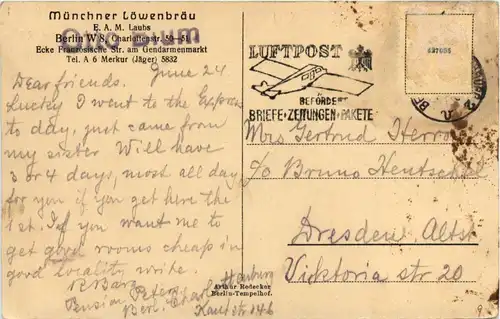 Münchner Löwenbräu
E. A. M. Laubs
Berlin W 8, Charlottenstr.
Otto Blum
Ecke Französische Str. am Gendarmenmarkt
Tel. A 6 Merkur (Jäger) 5832
June 24
Dear friends.
Lucky I went to the Express
to day, just came from
my sister Will have
3 or 4 days, most all day
for you if you get here the
1st. If you want me to
get good rooms cheap in
good locality write.
Pension Peters
Kant str 146
Arthur Redecker
Berlin-Tempelhof.
LUFTPOST
BEFÖRDERT
BRIEFE·ZEITUNGEN·PAKETE
Mrs Gertrud
c/o Bruno Hentschel
Dresden Altst
Vicktoria str 20